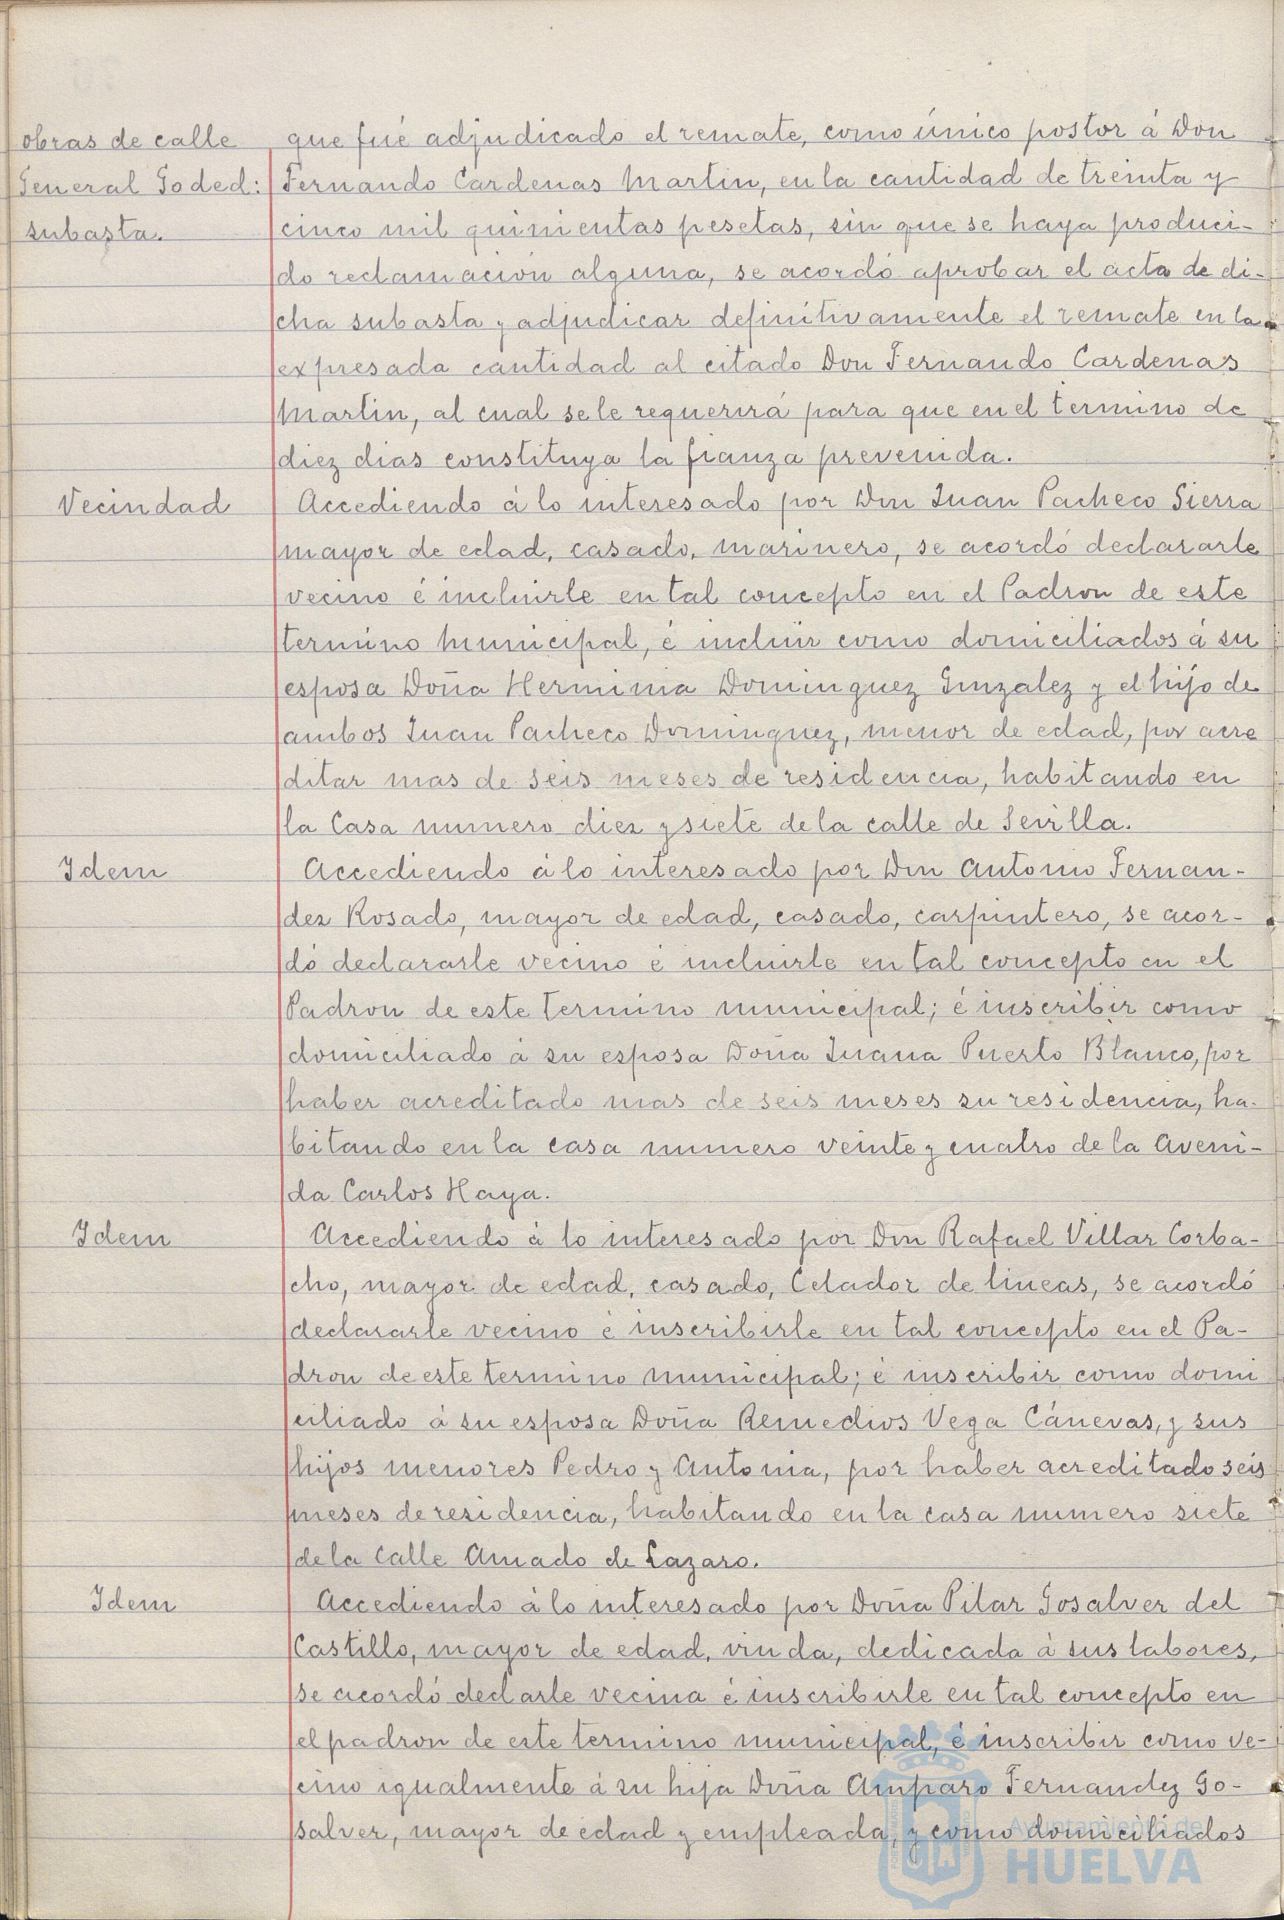 obras de calle
General Goded:
subasta.
que fué adjudicado el remate, como único postor á Don
Fernando Cardenas Martin, en la cantidad de treinta y
cinco mil quinientas pesetas, sin que se haya produci-
do reclamación alguna, se acordó aprobar el acta de di-
cha subasta y adjudicar definitivamente el remate en la
expresada cantidad al citado Don Fernando Cardenas
Martin, al cual se le requerirá para que en el termino de
diez dias constituya la fianza prevenida.
Vecindad
Accediendo á lo interesado por Don Juan Pacheco Sierra
mayor de edad, casado, marinero, se acordó declararle
vecino é incluirle en tal concepto en el Padron de este
termino municipal, é incluir como domiciliados á su
esposa Doña Herminia Dominguez Gonzalez y el hijo de
ambos Juan Pacheco Dominguez, menor de edad, por acre
ditar mas de seis meses de residencia, habitando en
la Casa numero diez y siete de la calle de Sevilla.
Idem
Accediendo á lo interesado por Don Antonio Fernan-
dez Rosado, mayor de edad, casado, carpintero, se acor-
dó declararle vecino é incluirle en tal concepto en el
Padron de este termino municipal; é inscribir como
domiciliado á su esposa Doña Juana Puerto Blanco, por
haber acreditado mas de seis meses su residencia, ha-
bitando en la casa numero veinte y cuatro de la Aveni-
da Carlos Haya.
Idem
Accediendo á lo interesado por Don Rafael Villar Corba-
cho, mayor de edad, casado, Celador de lineas, se acordó
declararle vecino é inscribirle en tal concepto en el Pa-
dron de este termino municipal; é inscribir como domi
ciliado á su esposa Doña Remedios Vega Cánevas, y sus
hijos menores Pedro y Antonia, por haber acreditado seis
meses de residencia, habitando en la casa numero siete
de la Calle Amado de Lazaro.
Idem
Accediendo á lo interesado por Doña Pilar Gosalver del
Castillo, mayor de edad, viuda, dedicada á sus labores,
se acordó declarle vecina é inscribirle en tal concepto en
el padron de este termino municipal, é inscribir como ve-
cino igualmente á su hija Doña Amparo Fernandez Go-
salver, mayor de edad y empleada, y como domiciliados
Ayuntamiento de
HUELVA